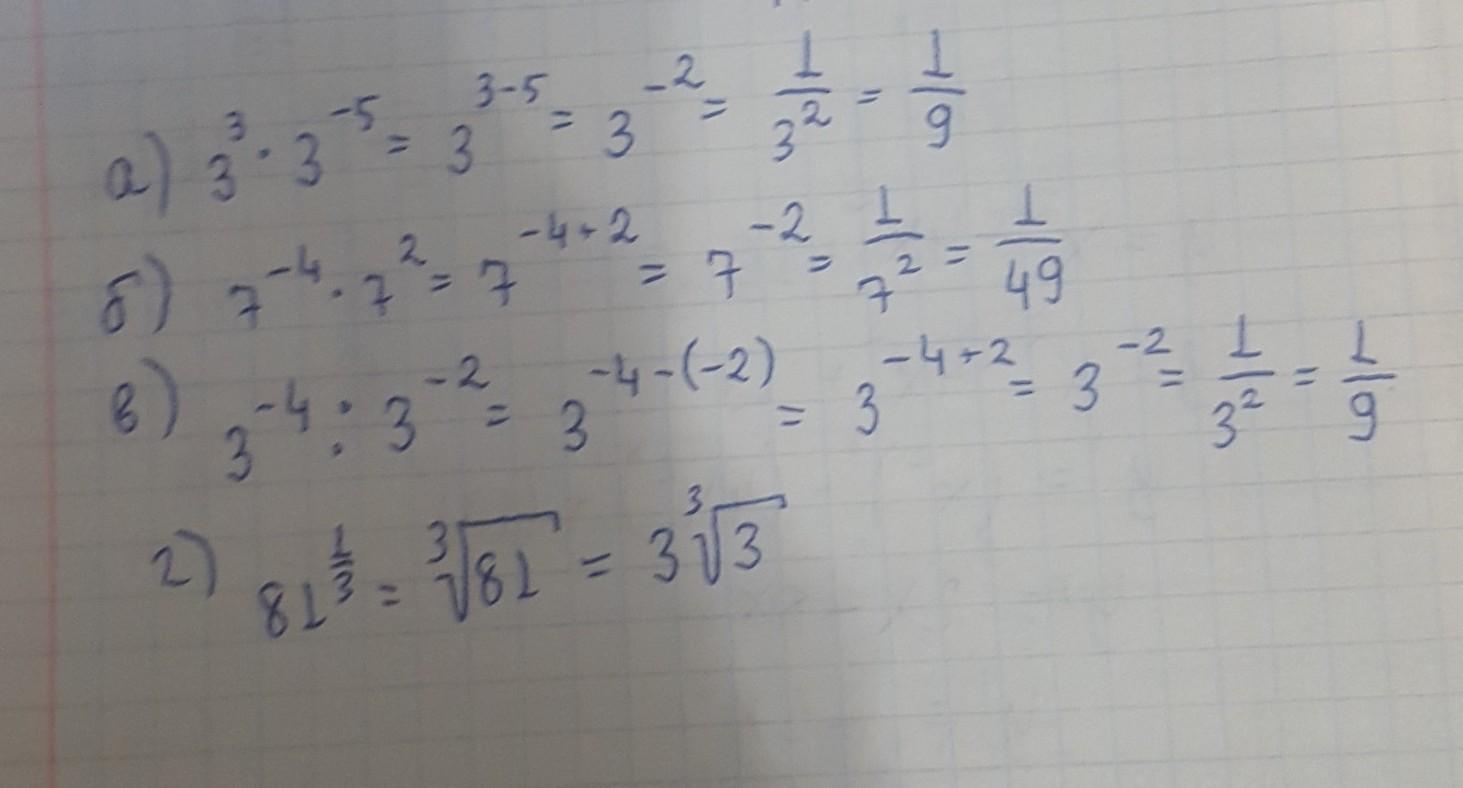 а) 3³ · 3⁻⁵ = 3³⁻⁵ = 3⁻² = 1/3² = 1/9
б) 7⁻⁴ · 7² = 7⁻⁴⁺² = 7⁻² = 1/7² = 1/49
в) 3⁻⁴ : 3⁻² = 3⁻⁴⁻⁽⁻²⁾ = 3⁻⁴⁺² = 3⁻² = 1/3² = 1/9
г) 81^(1/3) = ³√81 = 3 ³√3